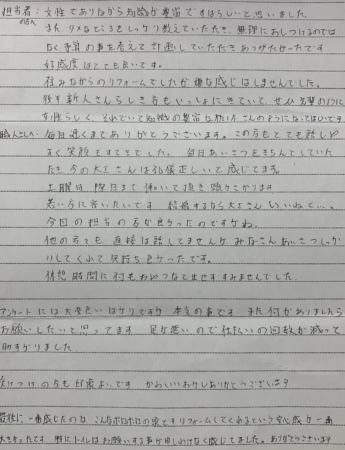 担当者：女性でありながら知識が豊富ですばらしいと思いました。
また ダメなところをしっかり教えていただき、無理におしつけるのでは
なく 予算の事を考えて 計画していただき ありがたかったです
好感度はとても良いです。
住みながらのリフォームでしたが 嫌な感じはしませんでした。
新人さんらしき方もいっしょにきていて、ぜひ 先輩のように
女性らしく それでいて 知識の豊富な
職人さんへ：毎日遅くまでありがとうございます。この方もとても話し
よく 笑顔も すてきでした。毎日 あいさつをきちんとしていた
だき、大工さんは 礼儀正しいと感じてます。
土曜日、 まで 働いて頂き 頭がさがります
若い方に言いたいです 結婚するなら 大工さん いいねと…。
今回の担当の方が良かったのですかね。
他の方々も 直接は話してませんが みなさん あいさつ しっか
りしてくれて 気持ち良かったです。
休憩時間に 何もおかまいなく すみませんでした。
アンケートには 大変良い ばかりですが 本当の事です また何かありましたら
お願いしたいと思ってます 足が悪いので 仏の回数が減って
助かりました
受けつけの方も 印象よいです かわいいお ありがとうございます
最後に 一番感じたのは、こんなボロボロの家ですが リフォームしてくれるという 安心感が 一番
大きかったです 特にトイレはお願いする事が申しわけなく感じてました。ありがとうございます